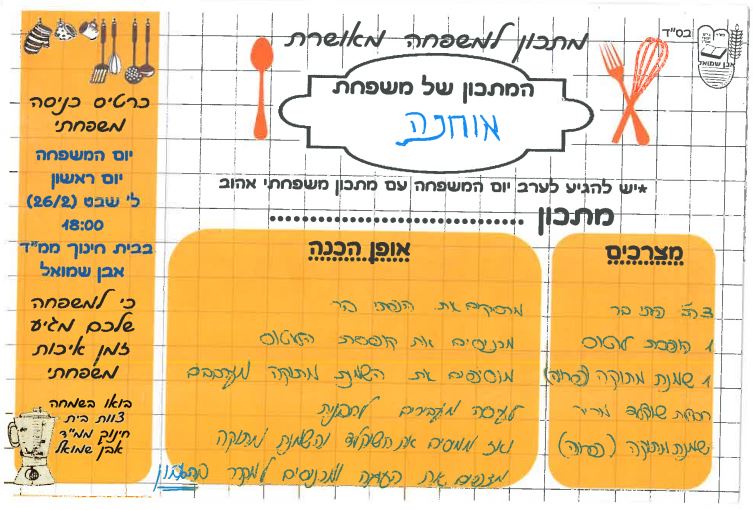 בס"ד
אבן שמואל
מתכון למשפחה מאושרת
המתכון של משפחת
אוחנה
*יש להגיע לערב יום המשפחה עם מתכון משפחתי אהוב
מתכון ................................
מצרכים
פתי בר
1 קופסת לוטוס
1 שמנת מתוקה (פרווה)
חבילת שוקולד מריר
שמנת מתוקה (פרווה)
אופן הכנה
מרסקים את הפתי בר
מכניסים את קופסית הלוטוס
מוסיפים את השמנת מתוקה מערבבים
לעיסה מעבירים לתבנית
ואז ממסים את השוקולד והשמנת מתוקה
מצפים את העוגה ומכניסים למקרר
כרטיס כניסה
משפחתי
יום המשפחה
יום ראשון
ל' שבט (26/2)
18:00
בבית חינוך ממ"ד
אבן שמואל
כי למשפחה
שלכם מגיע
זמן איכות
משפחתי
בואו בשמחה
צוות בית
חינוך ממ"ד
אבן שמואל